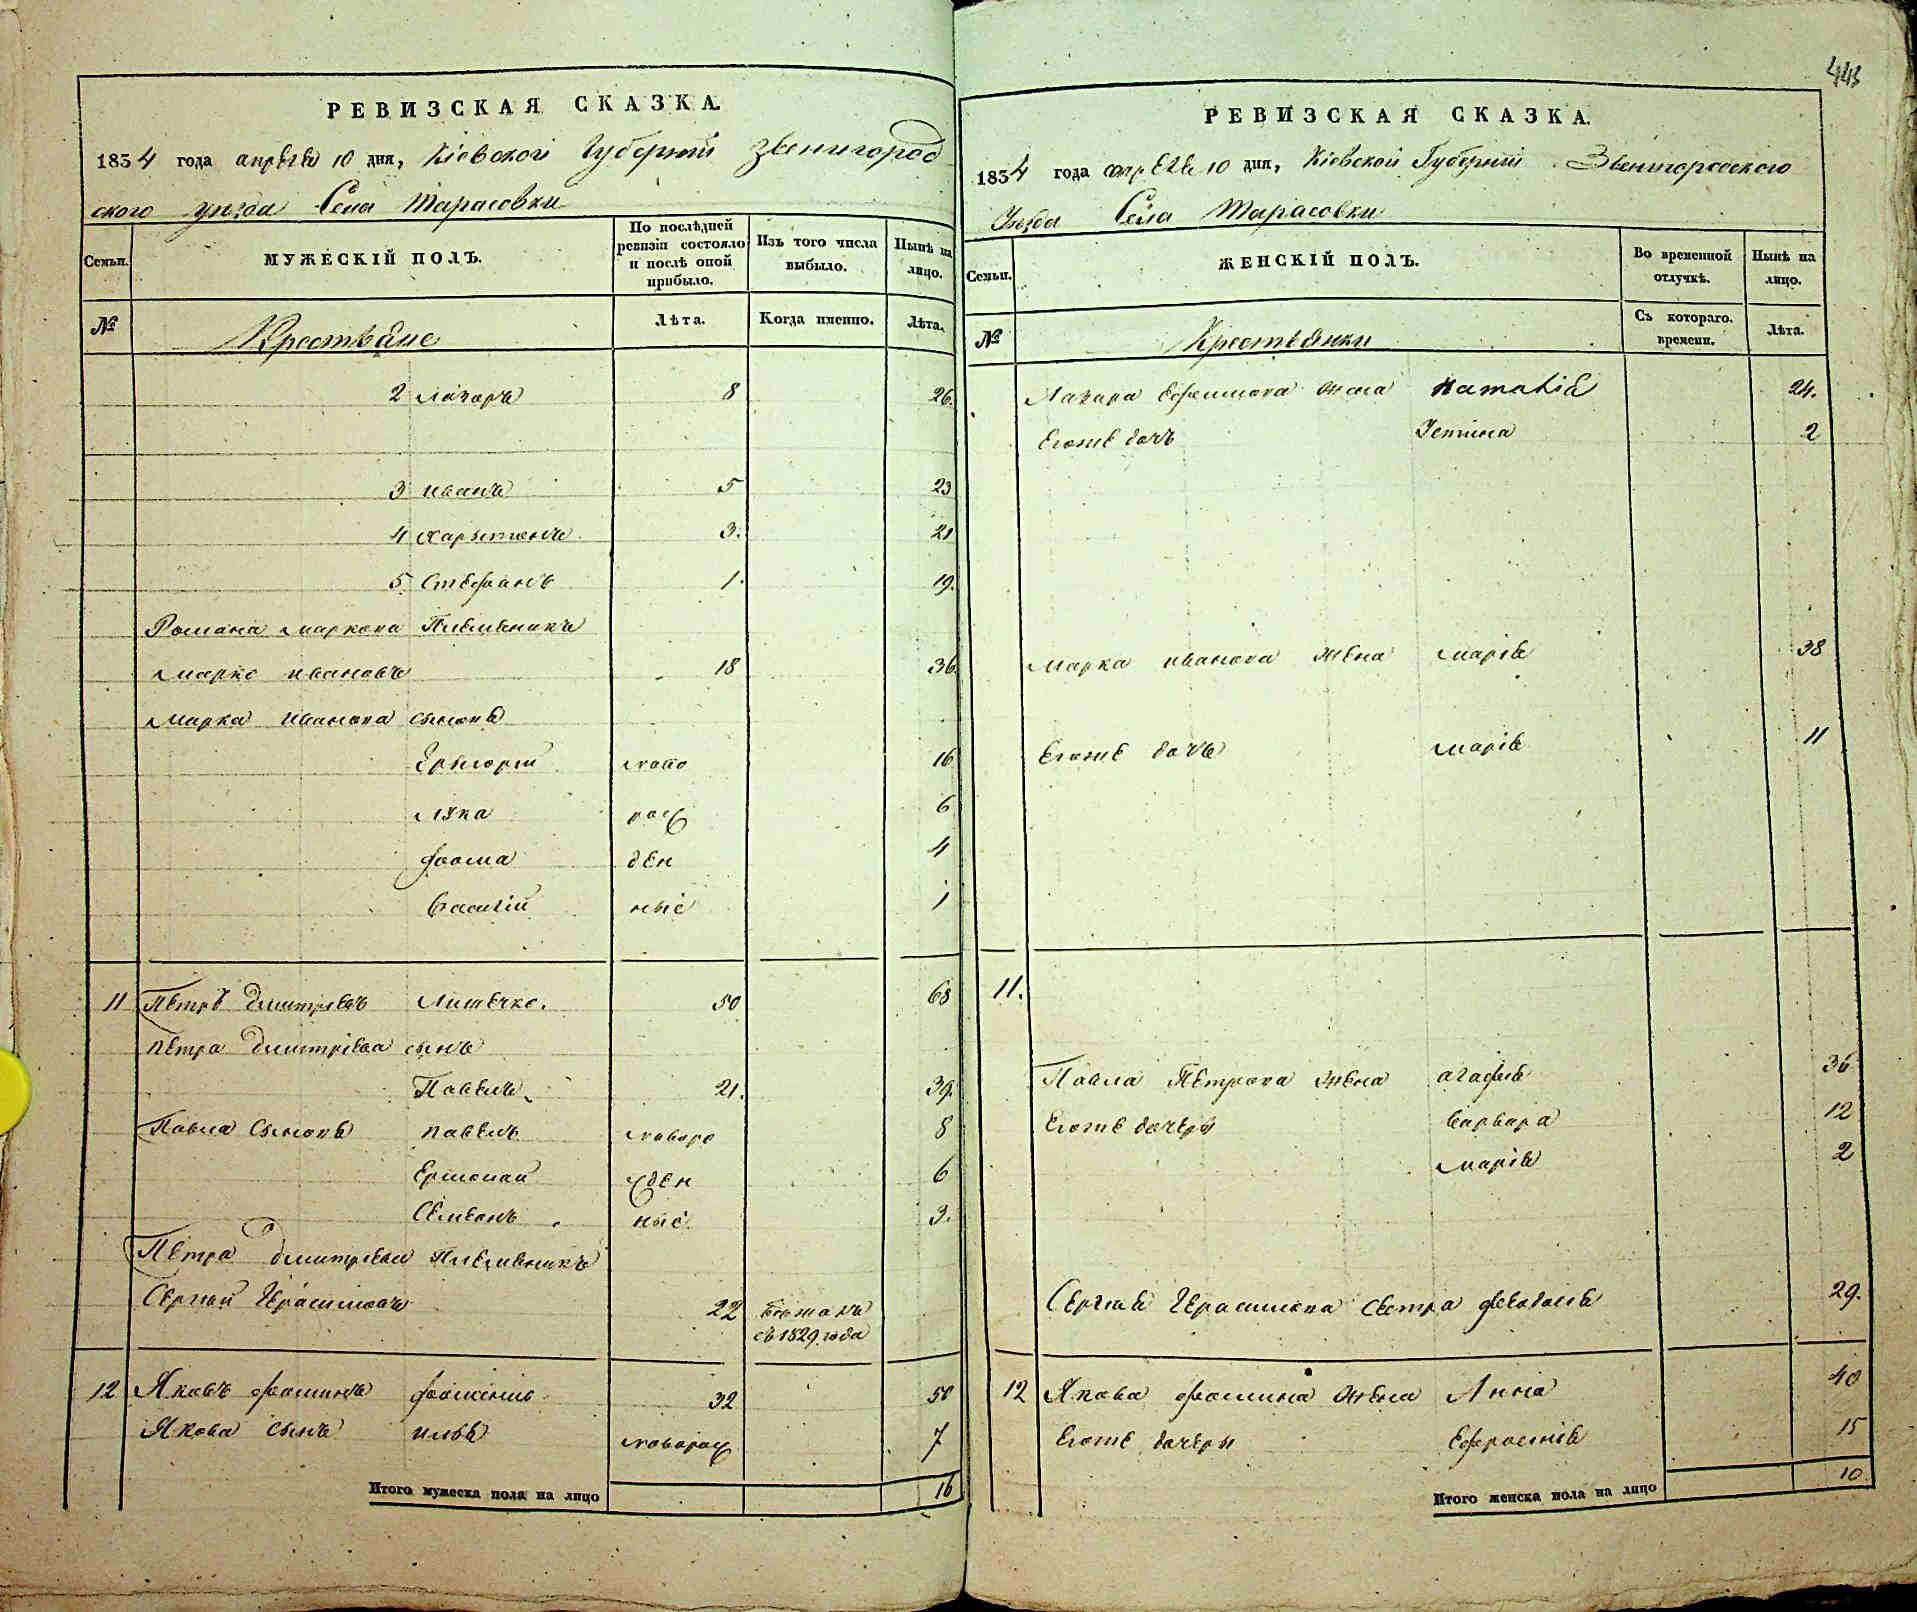 РЕВИЗСКАЯ СКАЗКА.
1834 года апреля 10 дня, Кіевской Губерніи Звенигород
ского уезда Села Тарасовки
Семьи.
МУЖЕСКІЙ ПОЛЪ.
По послѣдней ревизіи состояло и послѣ оной прибыло.
Изъ того числа выбыло.
Нынѣ на лицо.
№
Крестьяне
Лѣта.
Когда именно.
Лѣта.
2 Лазоръ 8 26.
3 иванъ 5 23
4 Харытонъ 3. 21
5 Стефанъ 1. 19.
Романа Маркова Племеникъ
Марко ивановъ 18 36.
Марка иванова сыновя
Грыгорій ново 16
Лука рож 6
фома ден 4
Василій ные 1
11 Петръ Дмитріевъ Литвечко. 50 68
Петра Дмитріева сынъ
Павелъ 21. 39.
Павла Сыновя павелъ новоро 8
Ермолай жден 6
Семенъ ные 3.
Петра Дмитріева Племеникъ
Сергей Герасимовъ 22
съ 1829 года
12 Яковъ фоминъ 32 50
Якова сынъ илья новорож 7
Итого мужеска пола на лицо 16
443
РЕВИЗСКАЯ СКАЗКА.
1834 года апреля 10 дня, Кіевской Губерніи Звенигородского
Уезда Села Тарасовки
Семьи.
ЖЕНСКІЙ ПОЛЪ.
Во временной отлучкѣ.
Нынѣ на лицо.
№
Крестьянки
Съ котораго. времени.
Лѣта.
Лазара Ефимова жена Наталія 24.
Егоже дочъ Устина 2
Марка иванова жена Марія 38
Егоже дочъ Марія 11
11.
Павла Петрова жена агафія 36
Егоже дочеры варвара 12
Марія 2
Сергея Герасимова Сестра феводосія 29.
12 Якова фомина жена Анна 40
Егоже дочеры Ефросинія 15
Итого женска пола на лицо 10